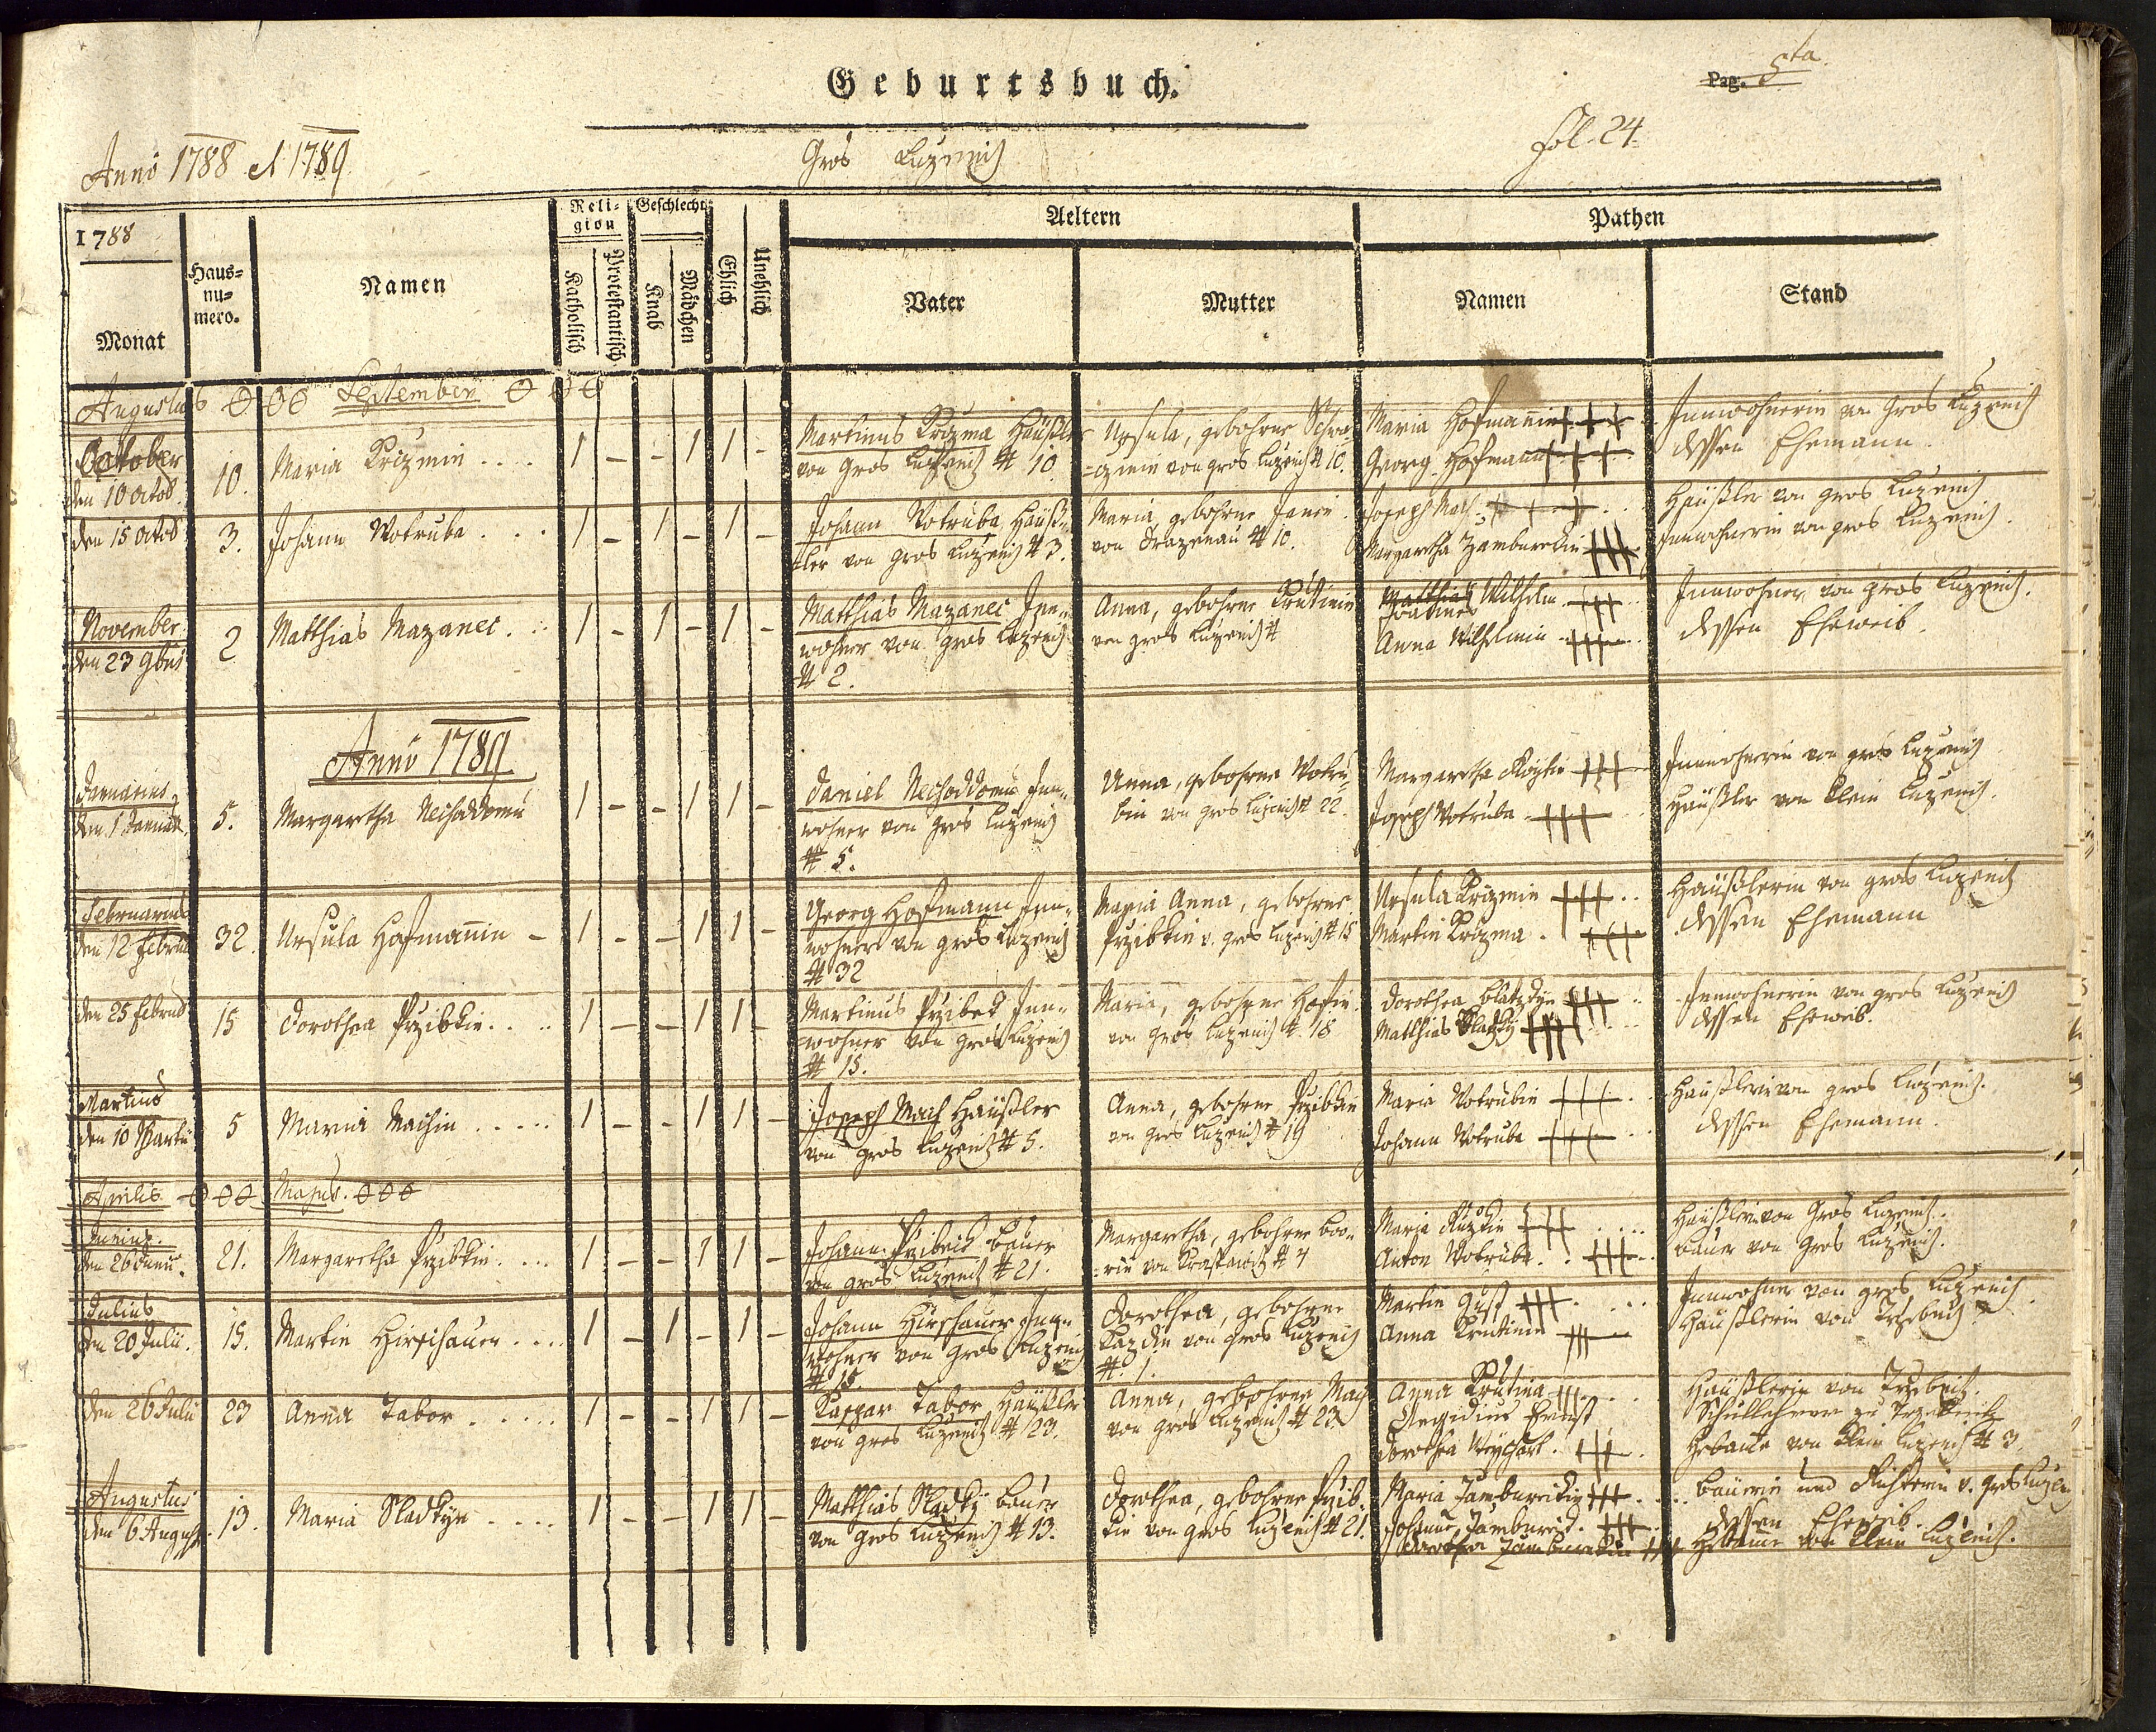 Geburtsbuch.
Pag. 5ta
Fol. 24.
Anno 1788 et 1789
Gros Luzenitz
1788
Monat
Haus-
nu-
mero.
Namen
Reli-
gion
Katholisch
Protestantisch
Geschlecht
Knab
Mädchen
Ehlich
Unehlich
Aeltern
Vater
Mutter
Pathen
Namen
Stand
Augustus September
October
den 10 Octob. 10. Maria Krizmin .... 1 - - 1 1 -
Martinus Krizma Häußler
von Gros Luzenitz # 10.
von gros Luzenitz # 10.
Maria Hofmanin
Georg Hofmann
Innwohnerin von Gros Luzenitz
dessen Ehemann.
den 15 Octob 3. Johann Wotruba ... 1 - 1 - 1 -
Johann Wotruba, Häuß-
ler von gros Luzenitz # 3.
Maria, gebohrne
von Drazenau # 10.
Joseph Mach
Margaretha Zamburekin
Häußler von gros Luzenitz
Innwohnerin von gros Luzenitz.
November
den 23 9bris 2 Matthias Mazanec . 1 - 1 - 1 -
Matthias Mazanec Inn-
wohner von gros Luzenitz
# 2.
Anna, gebohrne Krutinin
von gros Luzenitz #
Matthias Wilhelm
Anna Wilhelmin
Innwohner von gros Luzenitz.
dessen Eheweib.
Anno 1789
Januarius
den 1 Januar. 5. Margaretha Nechoddomu 1 - - 1 1 -
Daniel Nechoddomu Inn-
wohner von gros Luzenitz
# 5.
Anna, gebohrne Wotru-
bin von gros Luzenitz # 22.
Margaretha
Joseph Wotruba
Innwohnerin von gros Luzenitz
Häußler von klein Luzenitz.
Februarius
den 12 Februar 32. Ursula Hofmannin - 1 - - 1 1 -
Georg Hofmann Inn-
wohner von gros Luzenitz
# 32
Maria Anna, gebohrne
Przibkin v. gros Luzenitz # 15
Ursula Krizmin
Martin Krizma .
Häußlerin von gros Luzenitz
dessen Ehemann
den 25 Februar 15 Dorothea Przibkin .... 1 - - 1 1 -
Martinus Przibek Inn-
wohner von gros Luzenitz
# 15.
Maria, gebohrne
von gros Luzenitz # 18
Dorothea
Matthias
Innwohnerin von gros Luzenitz
dessen Eheweib.
Martius
den 10 Martii 5 Maria Machin ..... 1 - - 1 1 -
Joseph Mach Häußler
von gros Luzenitz # 5.
Anna, gebohrne Przibkin
von gros Luzenitz # 19
Maria Wotrubin
Johann Wotruba
Häußlerin von gros Luzenitz.
dessen Ehemann.
Aprilis Majus.
Junius.
den 26 Junii. 21. Margaretha Przibkin .... 1 - - 1 1 -
Johann Przibek Bauer
von gros Luzenitz # 21.
Margaretha, gebohrne
Maria
Anton Wotruba
Häußlerin von Gros Luzenitz.
Bauer von Gros Luzenitz.
Julius
den 20 Julii. 15. Martin Hirschauer .... 1 - 1 - 1 -
Johann Hirschauer Inn-
wohner von Gros Luzenitz
# 15.
Dorothea, gebohrne
von gros Luzenitz
# 1.
Martin
Anna Krutinin
Innwohner von gros Luzenitz
Häußlerin von
den 26 Julii 23 Anna Tabor ...... 1 - - 1 1 -
Kaspar Tabor Häußler
von gros Luzenitz # 23.
Anna, gebohrne Mach
von gros Luzenitz # 23
Anna Krutina
Aegidius Ernst
Dorothea
Häußlerin von
Schullehrer zu
von klein Luzenitz # 3.
Augustus
den 6 August. 13. Maria Sladkyn .... 1 - - 1 1 -
Matthias Sladky Bauer
von gros Luzenitz # 13.
Dorothea, gebohrne Przib-
kin von gros Luzenitz # 21.
Maria Zamburekin
Johann Zamburek
Dorothea Zamburekin
Bäuerin und Richterin v. gros
dessen Eheweib.
von klein Luzenitz.